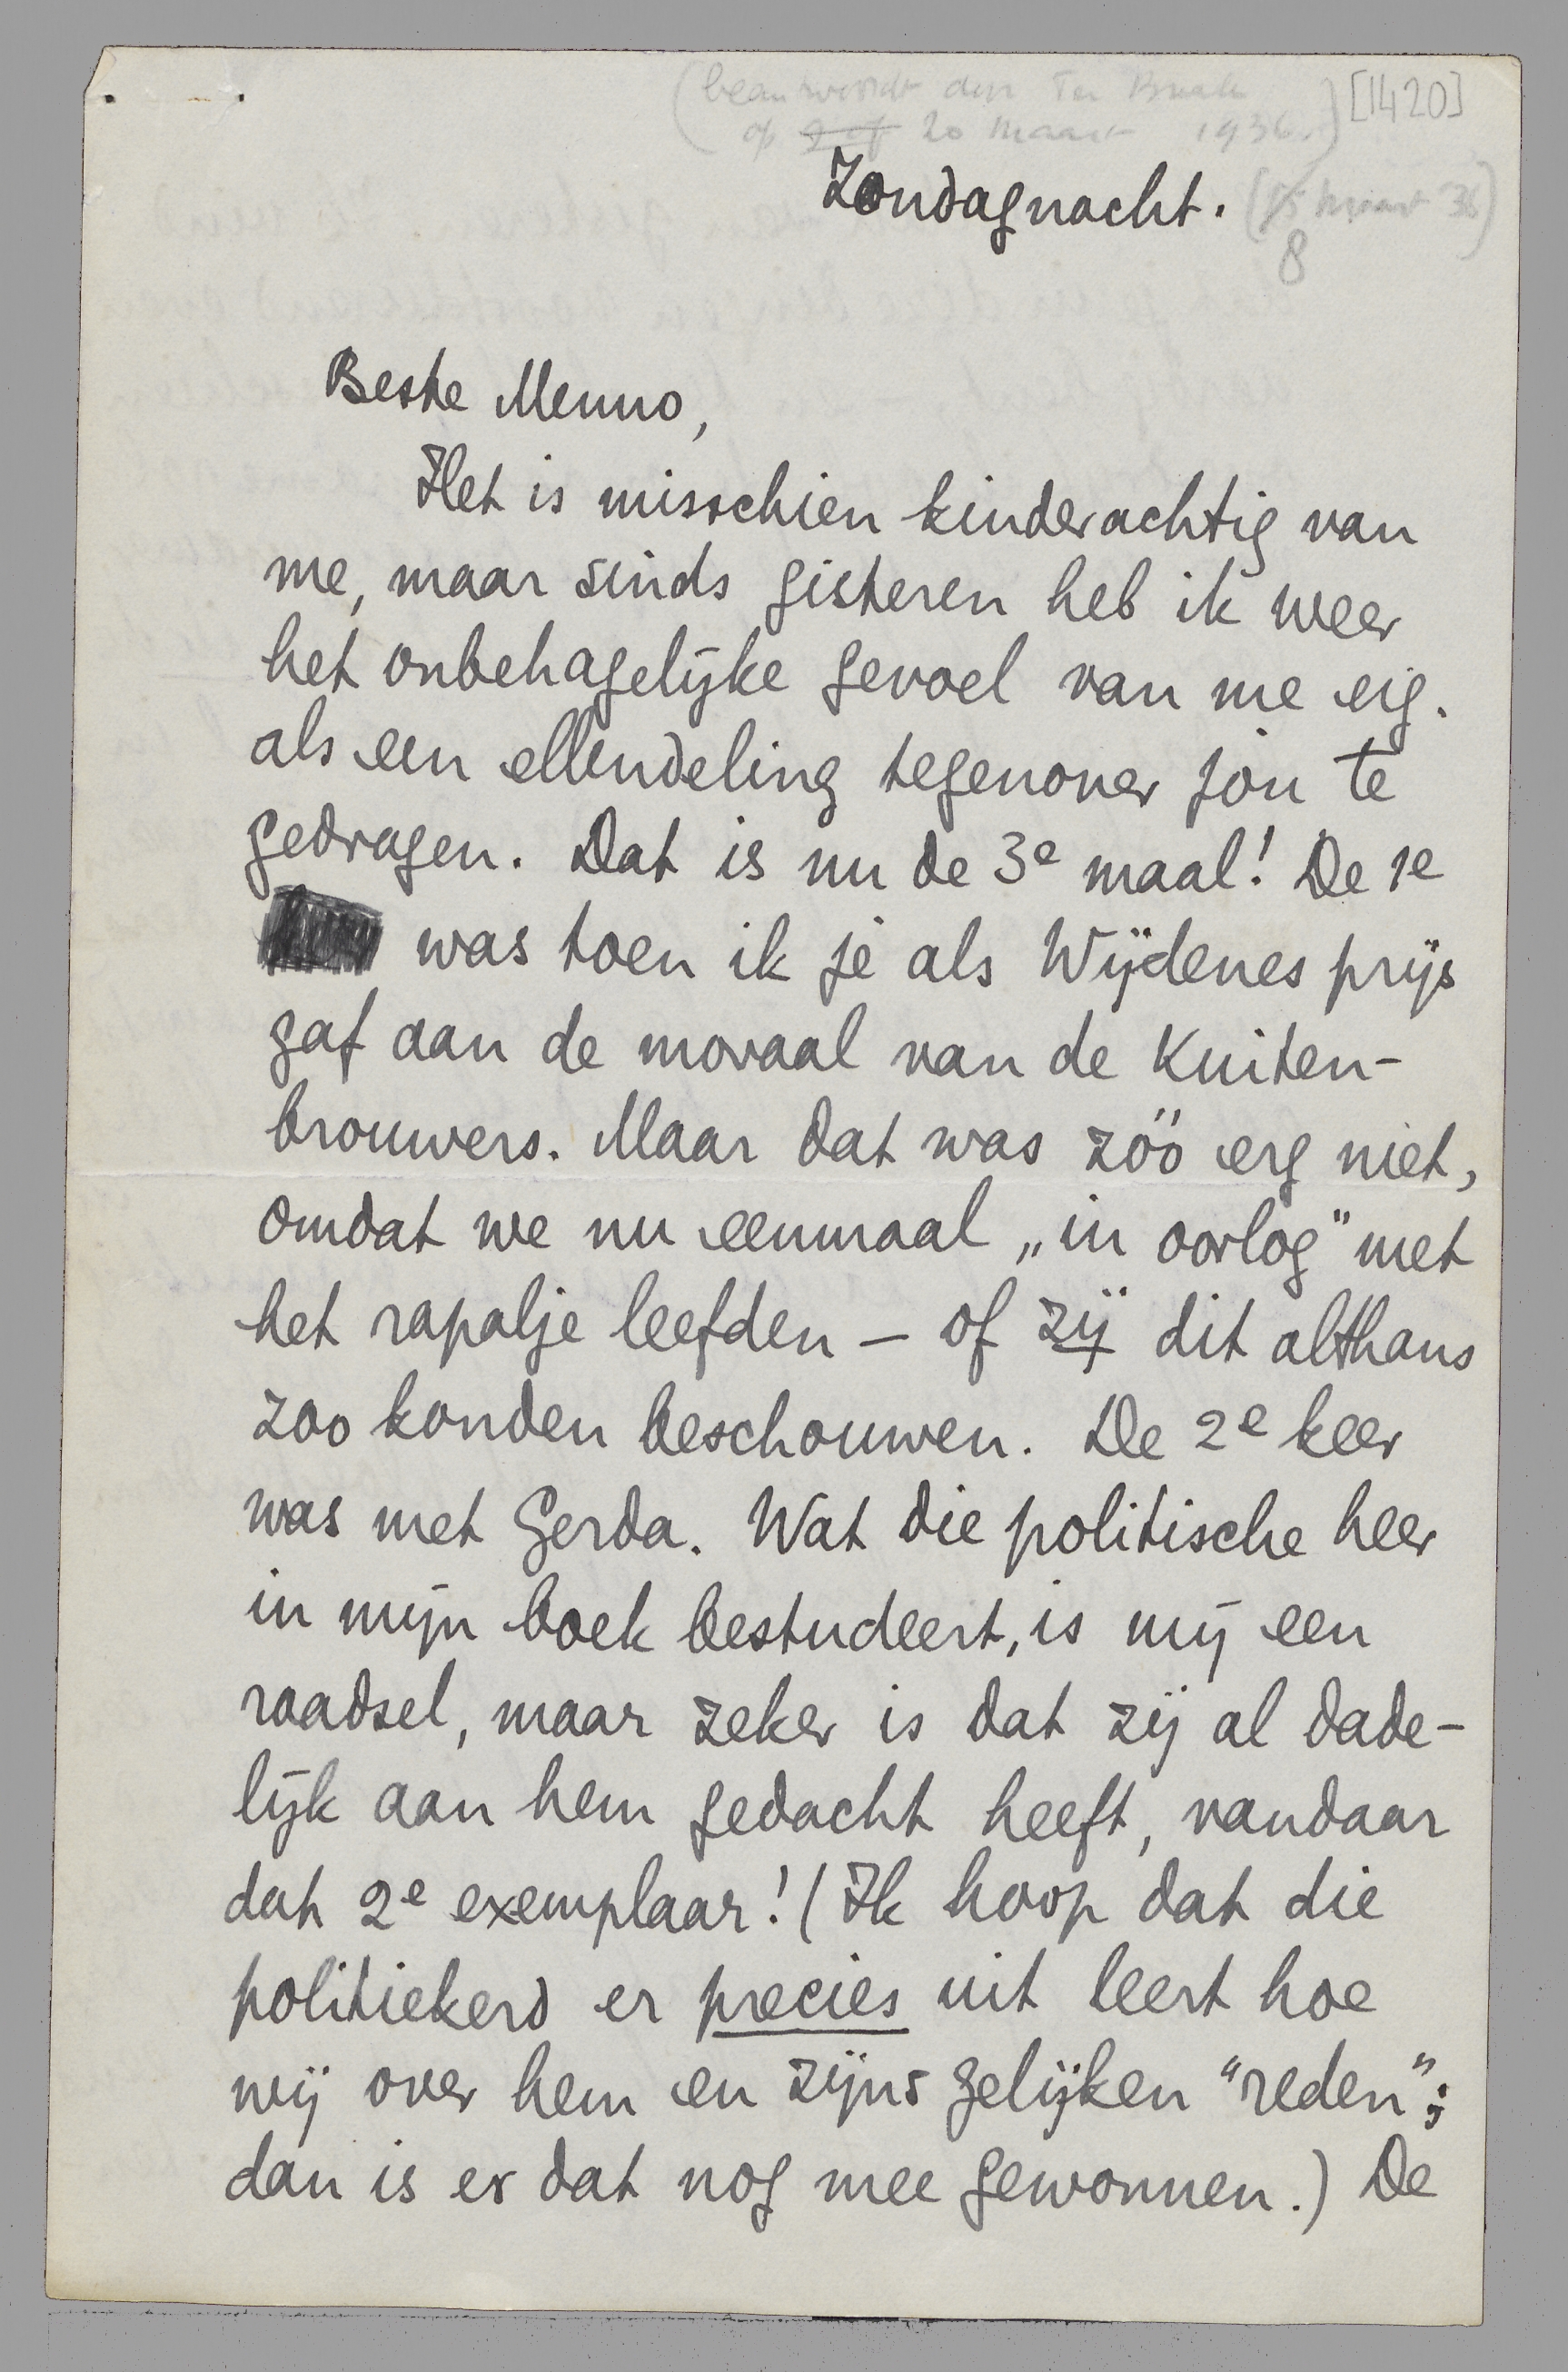 (beantwoordt door Ter Braak
op 9 of 20 maart 1936.)
[1420]
Zondagnacht. (15 maart 36)
8
Beste Menno,
Het is misschien kinderachtig van
me, maar sinds gisteren heb ik weer
het onbehagelijke gevoel van me eig.
als een ellendeling tegenover jòu te
gedragen. Dat is nu de 3e maal! De 1e
was toen ik je als Wijdenes prijs
gaf aan de moraal van de Kuiten-
brouwers. Maar dat was zóó erg niet,
omdat we nu eenmaal „in oorlog" met
het rapalje leefden – of zij dit althans
zoo konden beschouwen. De 2e keer
was met Gerda. Wat die politische heer
in mijn boek bestudeert, is mij een
raadsel, maar zeker is dat zij al dade-
lijk aan hem gedacht heeft, vandaar
dat 2e exemplaar! (Ik hoop dat die
politiekerd er precies uit leert hoe
wij over hem en zijns gelijken "reden";
dan is er dat nog mee gewonnen.) De